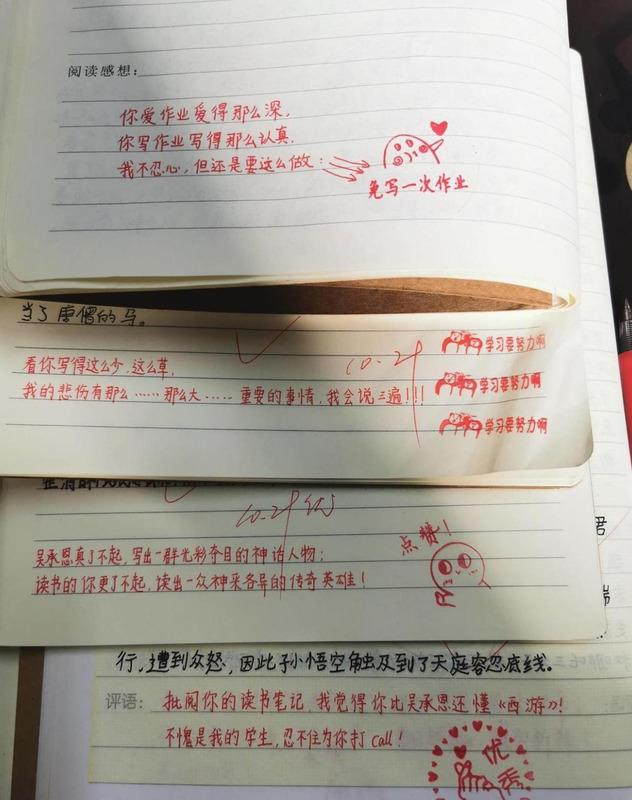 阅读感想:
你爱作业爱得那么深,
你写作业写得那么认真.
我不忍心,但还是要这么做:
免写一次作业
当了唐僧的马。
看你写得这么少,这么草,
10.29
学习要努力啊
我的悲伤有那么……那么大…… 重要的事情,我会说三遍!!!
学习要努力啊
学习要努力啊
10.29 优
点赞!
吴承恩真了不起,写出一群光彩夺目的神话人物;
读书的你更了不起,读出一众神采各异的传奇英雄!
行,遭到众怒,因此孙小悟空触及到了天庭容忍底线。
评语: 批阅你的读书笔记,我觉得你比吴承恩还懂《西游》!
不愧是我的学生,忍不住为你打call!
优秀